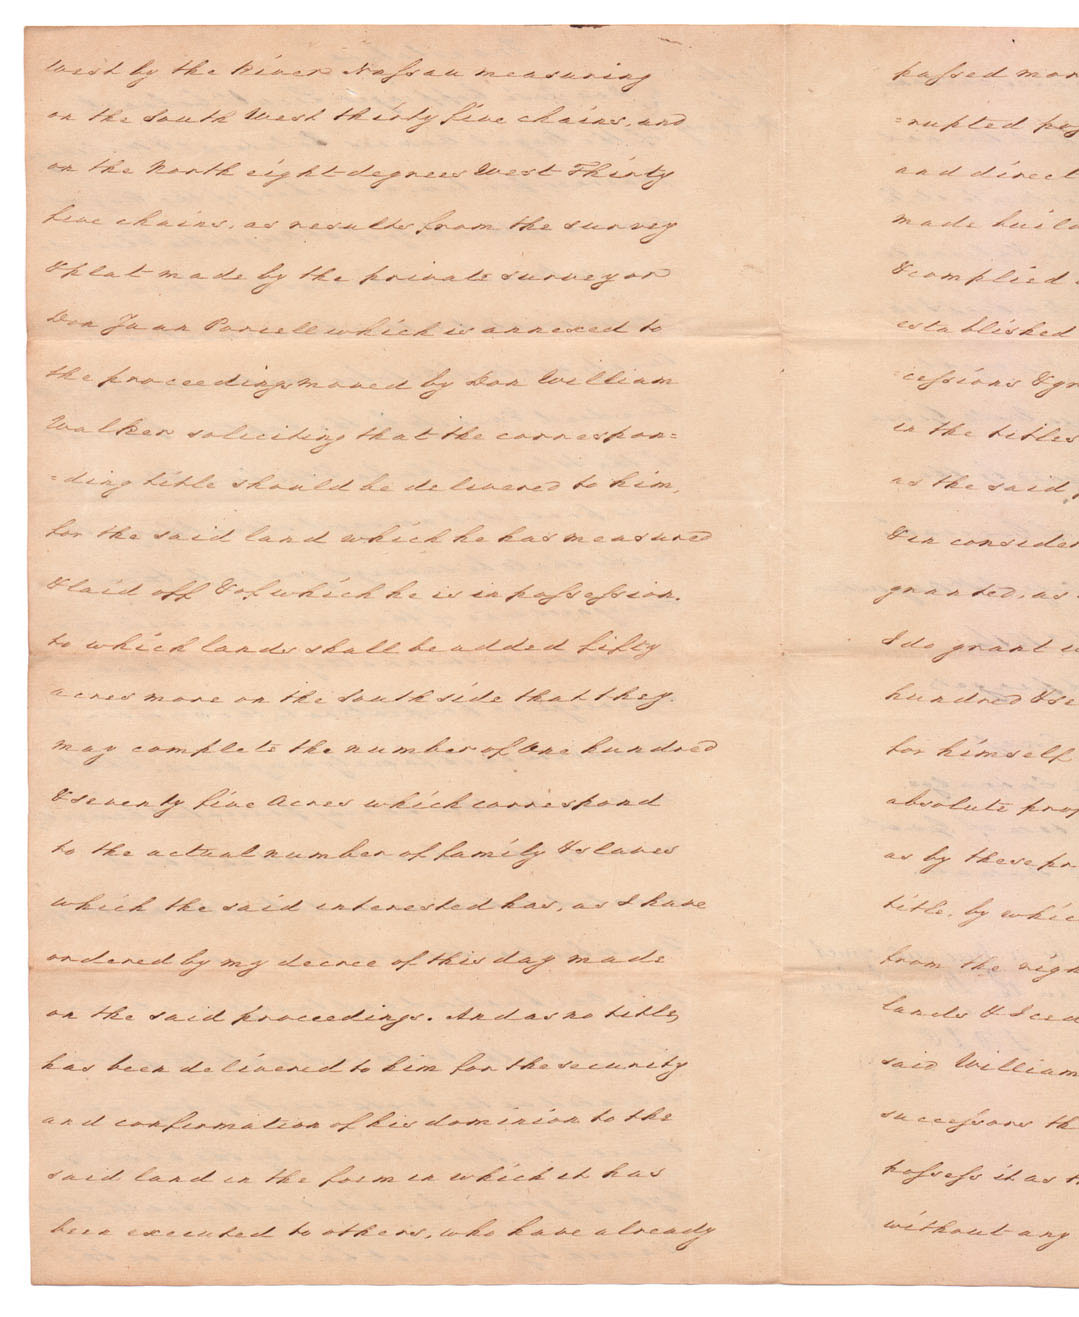 West by the River Nassau measuring
on the South West thirty five chains, and
on the North eight degrees West Thirty
five chains, as results from the survey
& plat made by the private surveyor
Don Juan Purcell which is annexed to
the proceedings moved by Don William
Walker soliciting that the correspon=
=ding title should be delivered to him,
for the said land which he has measured
& laid off & of which he is in possession.
to which lands shall be added fifty
acres more on the South side that they
may complete the number of One hundred
& seventy five Acres which correspond
to the actual number of family & slaves
which the said interested has, as I have
ordered by my decree of this day made
on the said proceedings. And as no title
has been delivered to him for the security
and confirmation of his dominion to the
said land in the form in which it has
been executed to others, who have already
passed mor
=rupted po
and direct
made build
& complied
established
=cessions & gr
in the titles
as the said
& in consider
granted, as
I do grant
hundred & se
for himself
absolute prop
as by these pr
title, by whic
from the righ
lands & I ced
said William
successors th
possess it as
without any